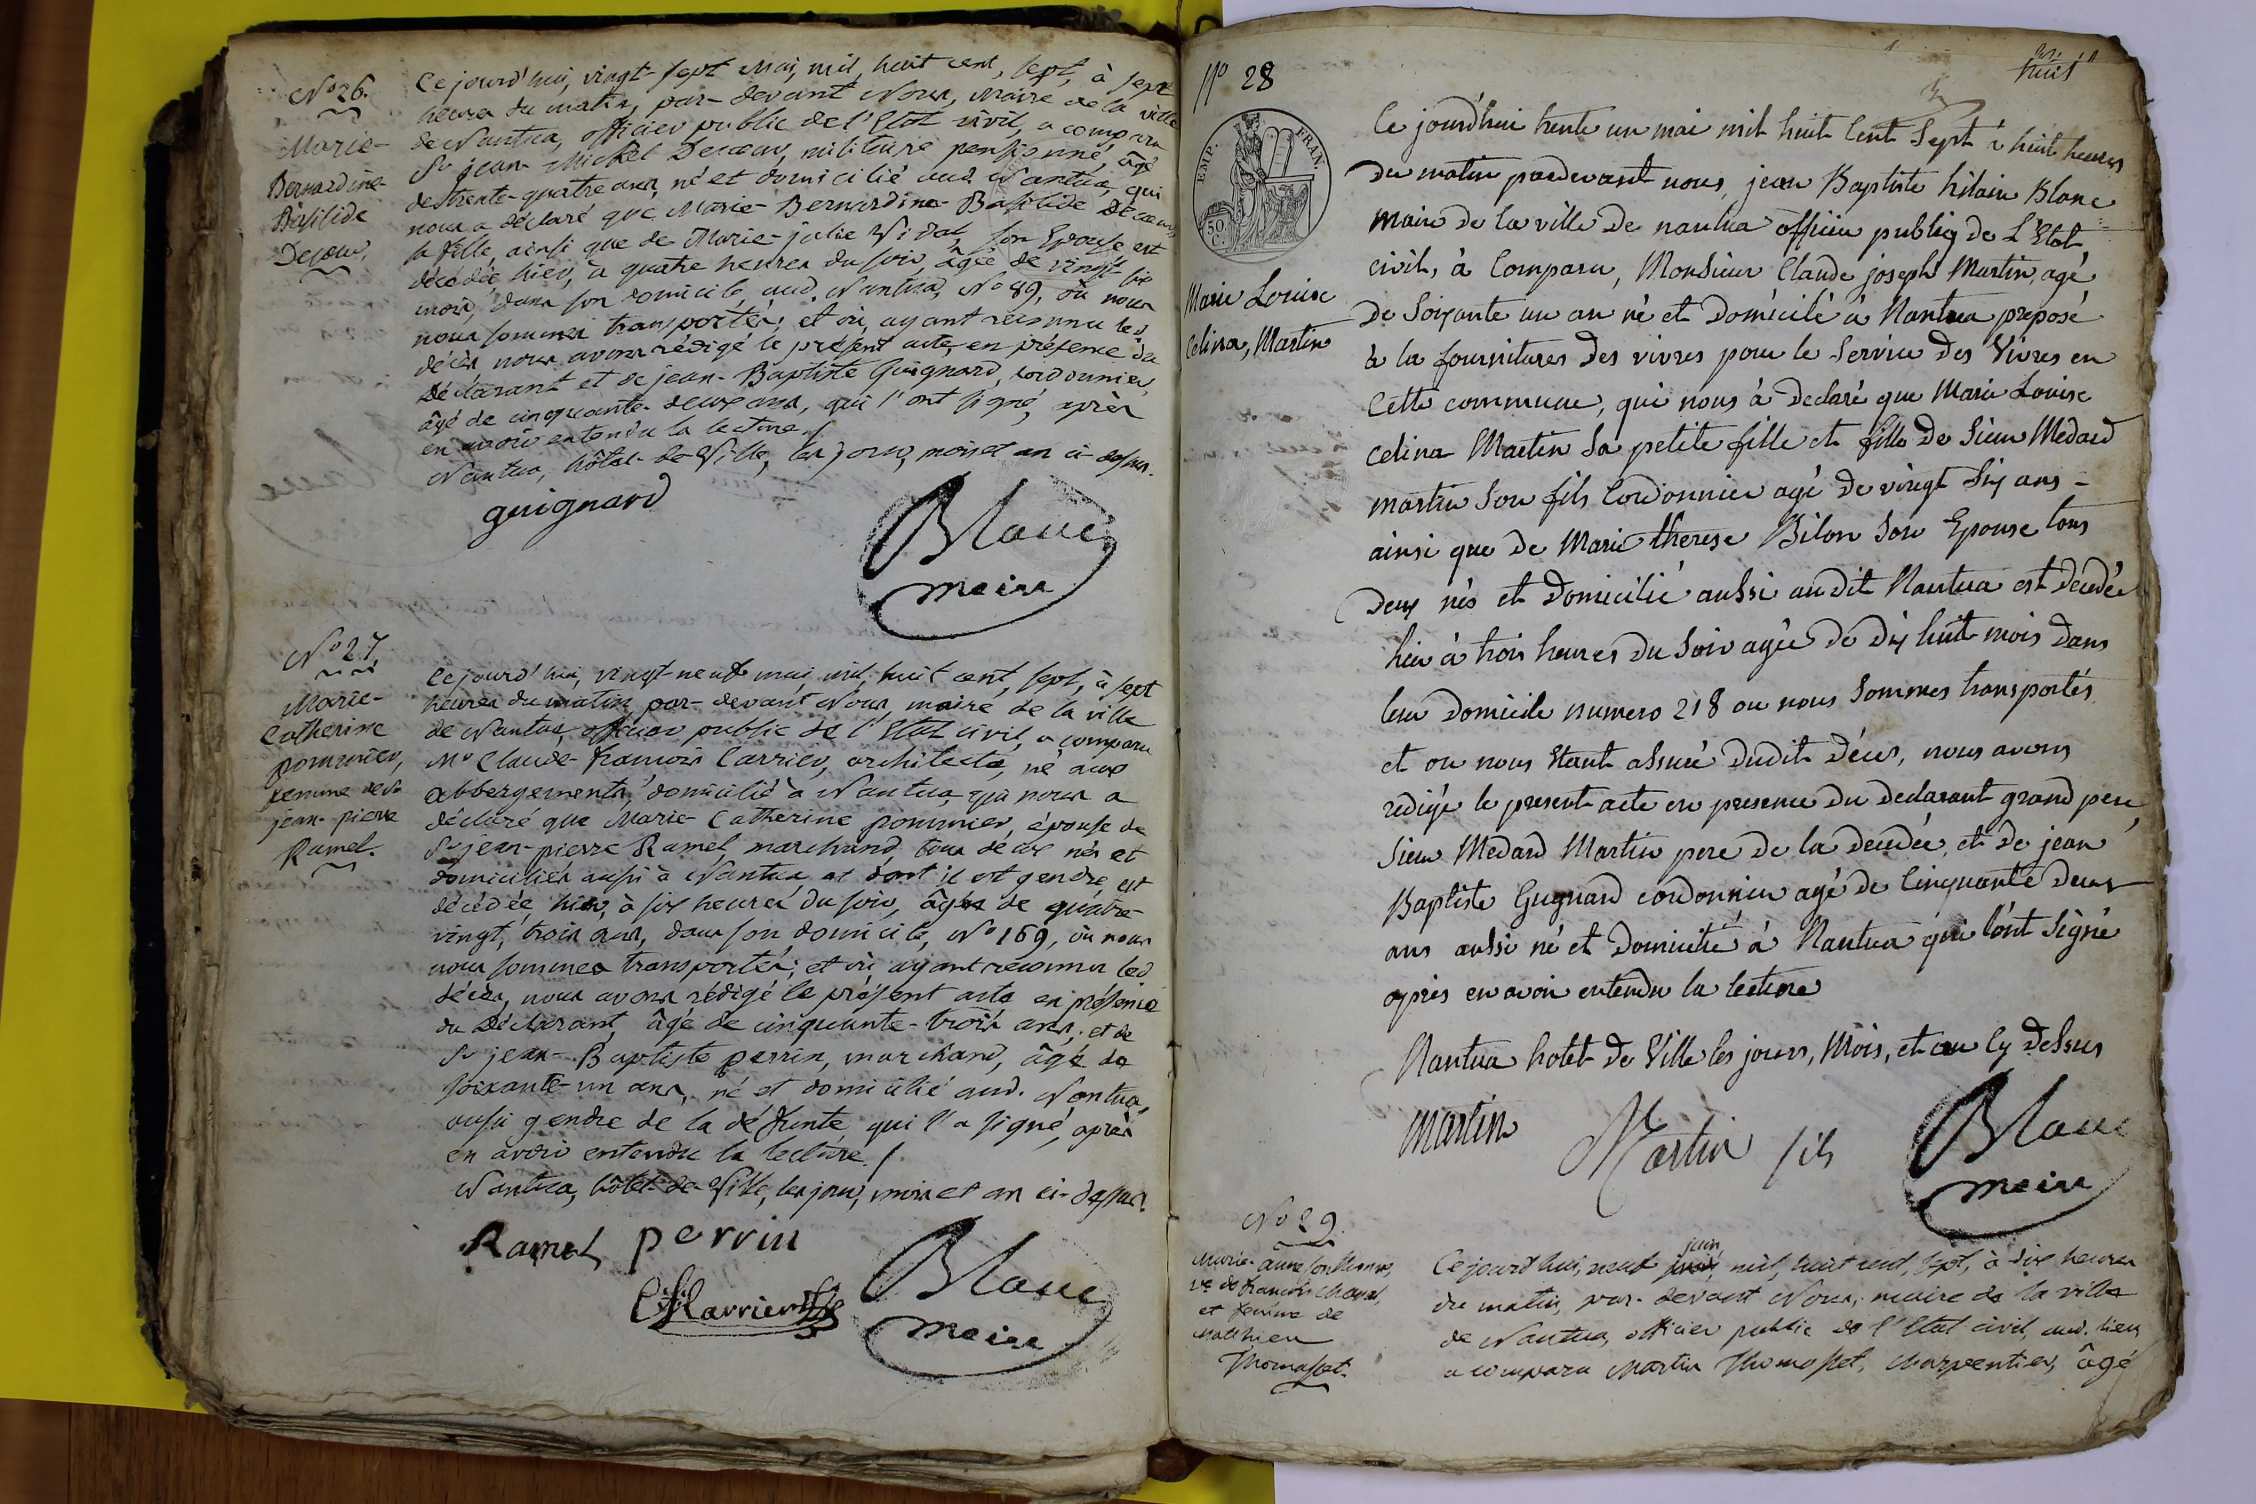 N° 26.
Marie-
Bernardine-
Basilide
Decœur,
Cejourd'hui, vingt-sept Mai, mil, huit cent, sept, à sept
heures du matin, par-devant Nous, Maire de la ville
de Nantua, officier public de l'Etat civil, a comparu
Sr jean-Michel Decœur, militaire pensionné, âgé
de trente-quatre ans, né et domicilié aud. Nantua, qui
nous a déclaré que Marie-Bernardine-Basilide Decœur,
sa fille, ainsi que de Marie-julie Vidal, son Epouse, est
décédée, hier, à quatre heures du soir, âgée de vingt-six
mois, dans son domicile, aud. Nantua, N° 89, où nous
nous sommes transportés; et où, ayant reconnu led.
décès, nous avons rédigé le présent acte, en présence du
Déclarant et de jean-Baptiste Guignard, cordonnier,
âgé de cinquante-deux ans, qui l'ont signé, après
en avoir entendu la lecture./
Nantua, hôtel-de-Ville, les jour, mois et an ci-dessus.
guignard
Blanc
maire
N° 27.
Marie-
Catherine
pommier,
femme de Sr
jean-pierre
Ramel.
Cejourd'hui, vingt-neuf mai, mil, huit cent, sept, à sept
heures du matin, par-devant Nous, maire de la ville
de Nantua, officier public de l'Etat civil, a comparu
Mr Claude-françois Carrier, architecte, né aux
abbergements, domicilié à Nantua, qui nous a
déclaré que Marie-Catherine pommier, épouse de
Sr jean-pierre Ramel, marchand, tous deux nés et
domiciliés aussi à Nantua, et dont il est gendre, est
décédée, hier, à six heures du soir, âgée de quatre-
vingt, trois ans, dans son domicile, N° 169, où nous
nous sommes transportés; et où, ayant reconnu led.
décès, nous avons rédigé le présent acte en présence
du Déclarant, âgé de cinquante-trois ans, et de
Sr jean-Baptiste perrin, marchand, âgé de
soixante-un ans, né et domicilié aud. Nantua,
aussi gendre de la défunte, qui l'a signé, après
en avoir entendu la lecture./.
Nantua, hôtel-de-Ville, les jour, mois et an ci-dessus.
Ramel perrin
Carrier
Blanc
maire
huit
N° 28
EMP. FRAN.
50 C.
Marie Louise
Celina, Martin
Ce jourd'hui trente un mai mil huit Cent Sept à huit heures
du matin pardevant nous, jean Baptiste hilaire Blanc
maire de la ville de nantua officier publiq de L'Etat
civil, à Comparu, Monsieur Claude joseph Martin, agé
de Soixante un an né et Domicilié à Nantua preposé
à la fournitures des vivres pour le Service des Vivres en
Cette commune, qui nous à declaré que Marie Louise
Celina Martin Sa petite fille et fille de Sieur Medard
martin Son fils Cordonnier agé de vingt Six ans -
ainsi que de Marie therese Bilon Son Epouse tous
Deux nés et Domicilié aussi au dit Nantua est décédée
hier à trois heures du Soir agée de dix huit mois dans
leur Domicile numero 218 ou nous Sommes transportés
et ou nous Etant assuré dudit décès, nous avons
redigé le present acte en presence du declarant grand pere,
Sieur Medard Martin pere de la decedée, et de jean
Baptiste Gugnard cordonnier agé de Cinquante deux
ans aussi né et Domicilié à Nantua qui l'ont Signé
après en avoir entendu la lecture
Nantua hotel de Ville les jours, Mois, et an Cy dessus
Martin Martin fils
Blanc
maire
N° 29.
Marie-anne
ve de francois
et femme de
Matthieu
Thomasset.
Cejourd'hui, neuf juin, mil, huit cent, sept, à dix heures
du matin, par-devant Nous, maire de la ville
de Nantua, officier public de l'Etat civil, aud. lieu,
a comparu Martin Thomasset, charpentier, âgé